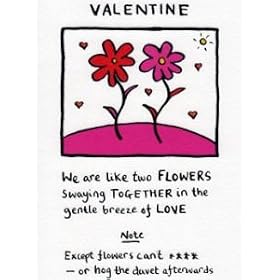 VALENTINE
We are like two FLOWERS
swaying TOGETHER in the
gentle breeze of LOVE
Note
Except flowers cant ****
— or hog the duvet afterwards